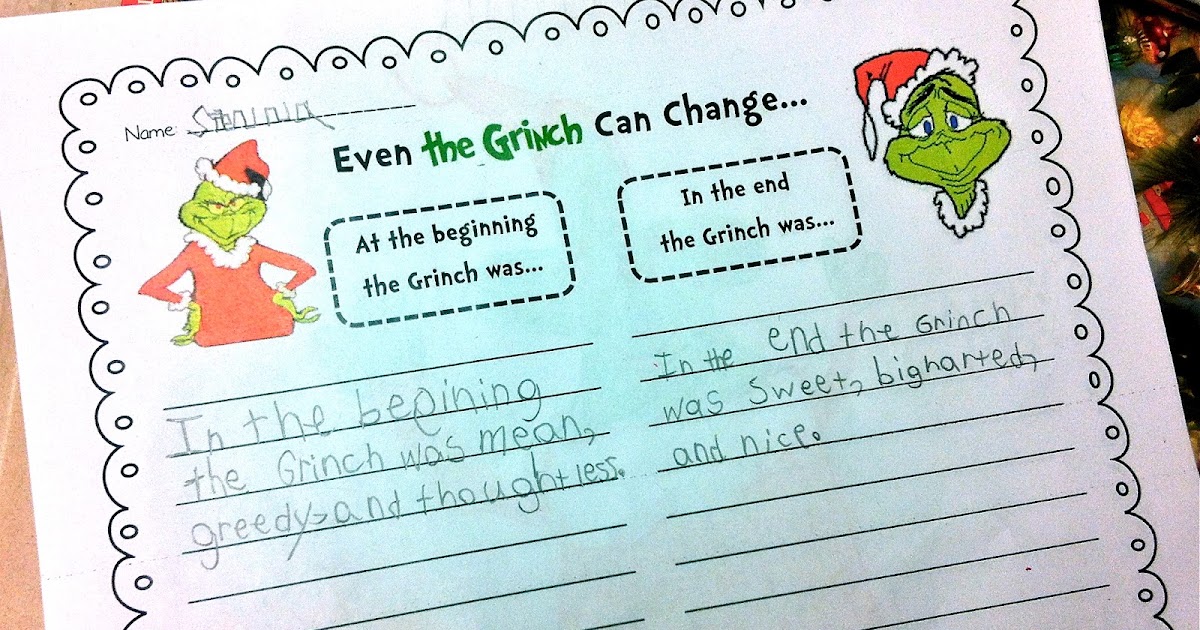 Name:
Even the Grinch Can Change...
At the beginning
the Grinch was...
In the end
the Grinch was...
In the begining
the Grinch was mean,
greedy, and thoughtless.
In the end the Grinch
was sweet, bigharted,
and nice.